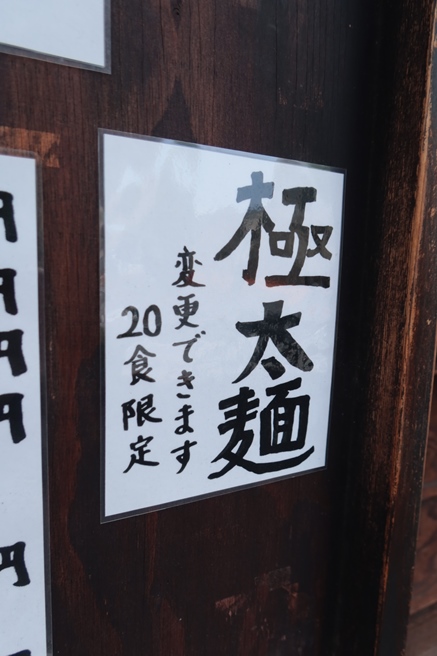 極太麺
変更できます
20食限定
円
円
円
円
円